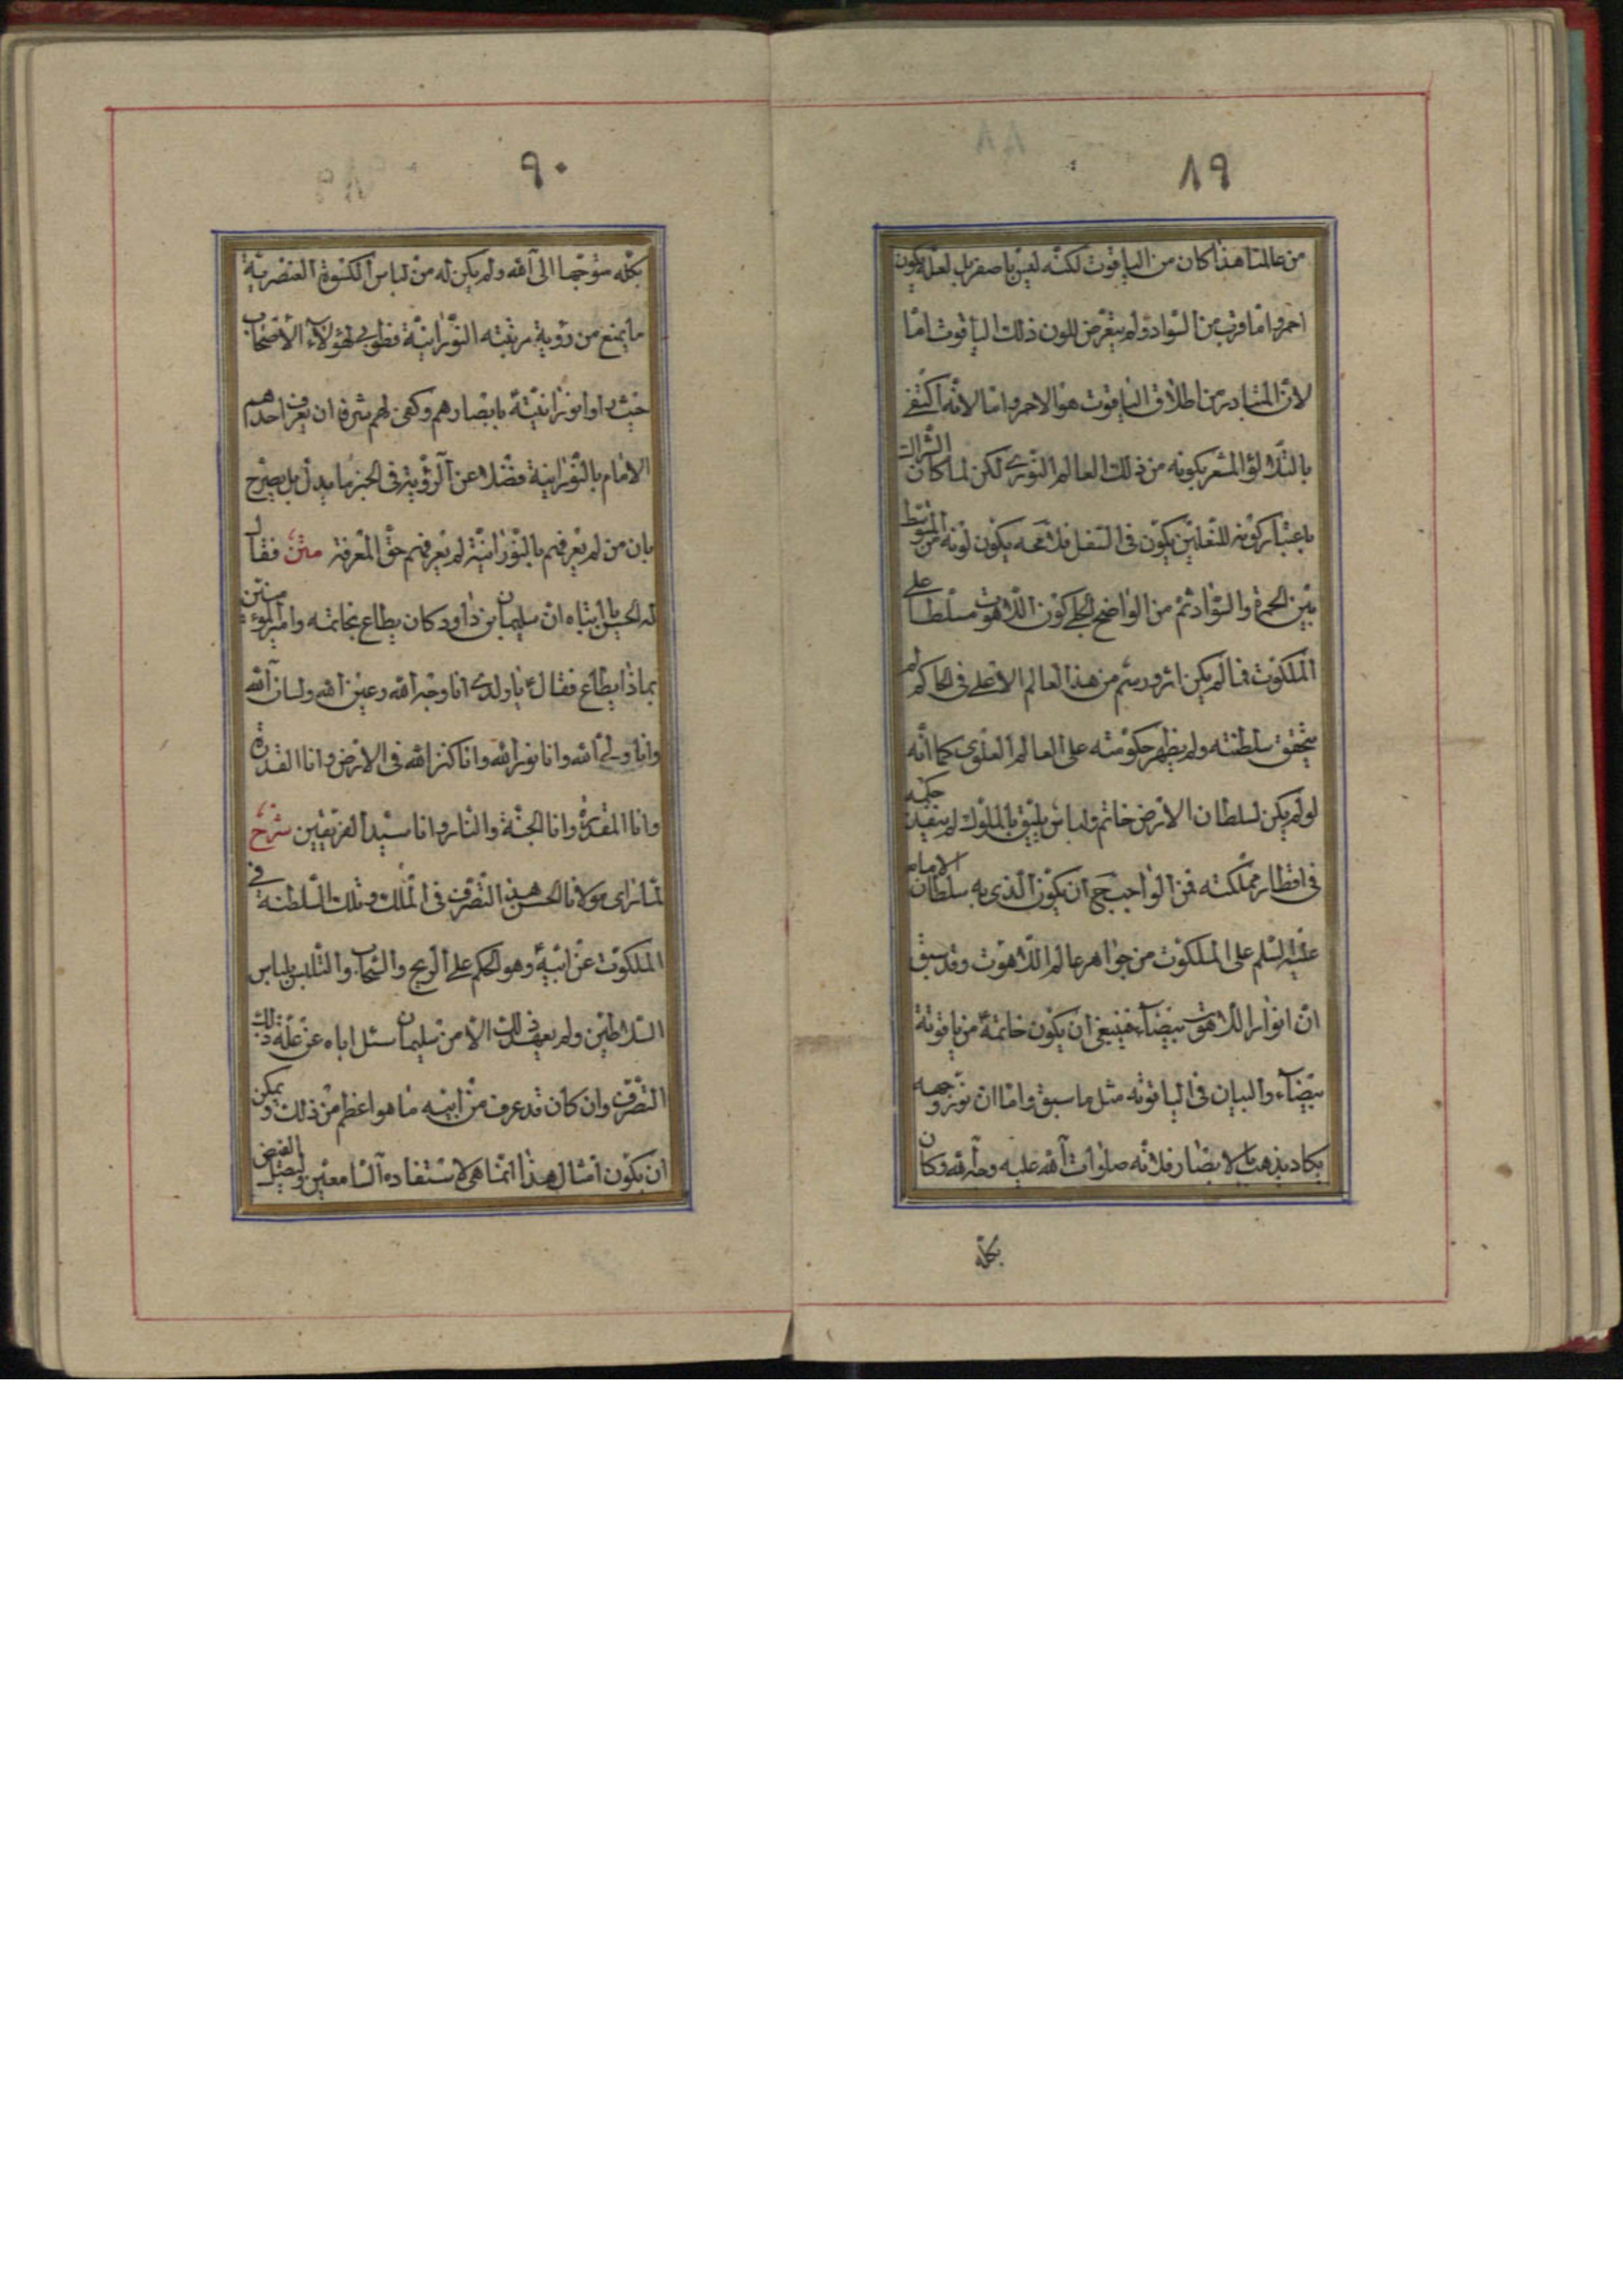 ٨٩
من عالمنا هذا كان من الياقوت لكنّه ليس باصفر بل لعلّه يكون
احمر و امّا قرب من السّواد و لم يتعرّض للون ذلك الياقوت امّا
لانّ المتبادر من اطلاق الياقوت هو الاحمر و امّا لانّه اكتفى
بالتلالؤ المشعر بكونه من ذلك العالم النّورى لكن لما كان الشراك
باعتبار كونه للنّعلين يكون فى السّفل فلا محه يكون لونه من المتوسّط
بين الحمرة و السّواد ثمّ من الواضح الجلى كون اللاهوت مسلّطا على
الملكوت فما لم يكن اثر و رسم من هذا العالم الاعلى فى الحاكم لم
يتحقق سلطنته و لم يظهر حكومته على العالم العلوى كما انّه
لو لم يكن لسلطان الارض خاتم و لباس يليق بالملوك لم ينفذ حكمه
فى اقطار مملكته فمن الواجب ح ان يكون الّذى به سلطان الامام
عليه السّلم على الملكوت من جواهر عالم اللاهوت و قد سبق
انّ انوار اللاهوت بيضاء فينبغى ان يكون خاتمه من ياقوتة
بيضاء و البيان فى الياقوته مثل ما سبق و امّا ان نور وجهه
يكاد يذهب بالابصار فلانّه صلوات اللّه عليه و حلّ للّه و كان
بكلّه
٩٠
بكلّه متوجّها الى اللّه و لم يكن له من لباس الكسوة العنصريّة
ما يمنع من رؤية مرتبته النّورانيّة فطوبى لهؤلاء الاصحاب
حيث راوا نورانيّتة بابصارهم و كفى لهم شرفا ان يعرف احدهم
الامام بالنّورانية فضلا عن الرّؤية و فى الخبر ما يدلّ بل يصرّح
بان من لم يعرفهم بالنّورانيّة لم يعرفهم حقّ المعرفة متن فقال
له الحسن يا ابتاه انّ سليمان بن داود كان يطاع بخاتمه و امير المؤمنين
بماذا يطاع فقال ع يا ولدى انا وجه اللّه و عين اللّه و لسان اللّه
و انا ولىّ اللّه و انا نور اللّه و انا كنز اللّه فى الارض و انا القدرة
و انا المقدرة و انا الجنّة و النّار و انا سيّد الفريقين شرح
لمّا رأى مولانا الحسن هذا التّصرّف فى الملك و تلك السّلطنة فى
الملكوت عن ابيه و هو الحكم على الرّيح و السّحاب و التّلبس بلباس
السّلاطين و لم يعهد ذلك الّا من سليمان سئل اباه عن علّة ذلك
التصّرف و ان كان قد عرف من ابيه ما هو اعظم من ذلك و يمكن
ان يكون امثال هذا انّما هى لاستفاده السّامعين و ليصل الفيض